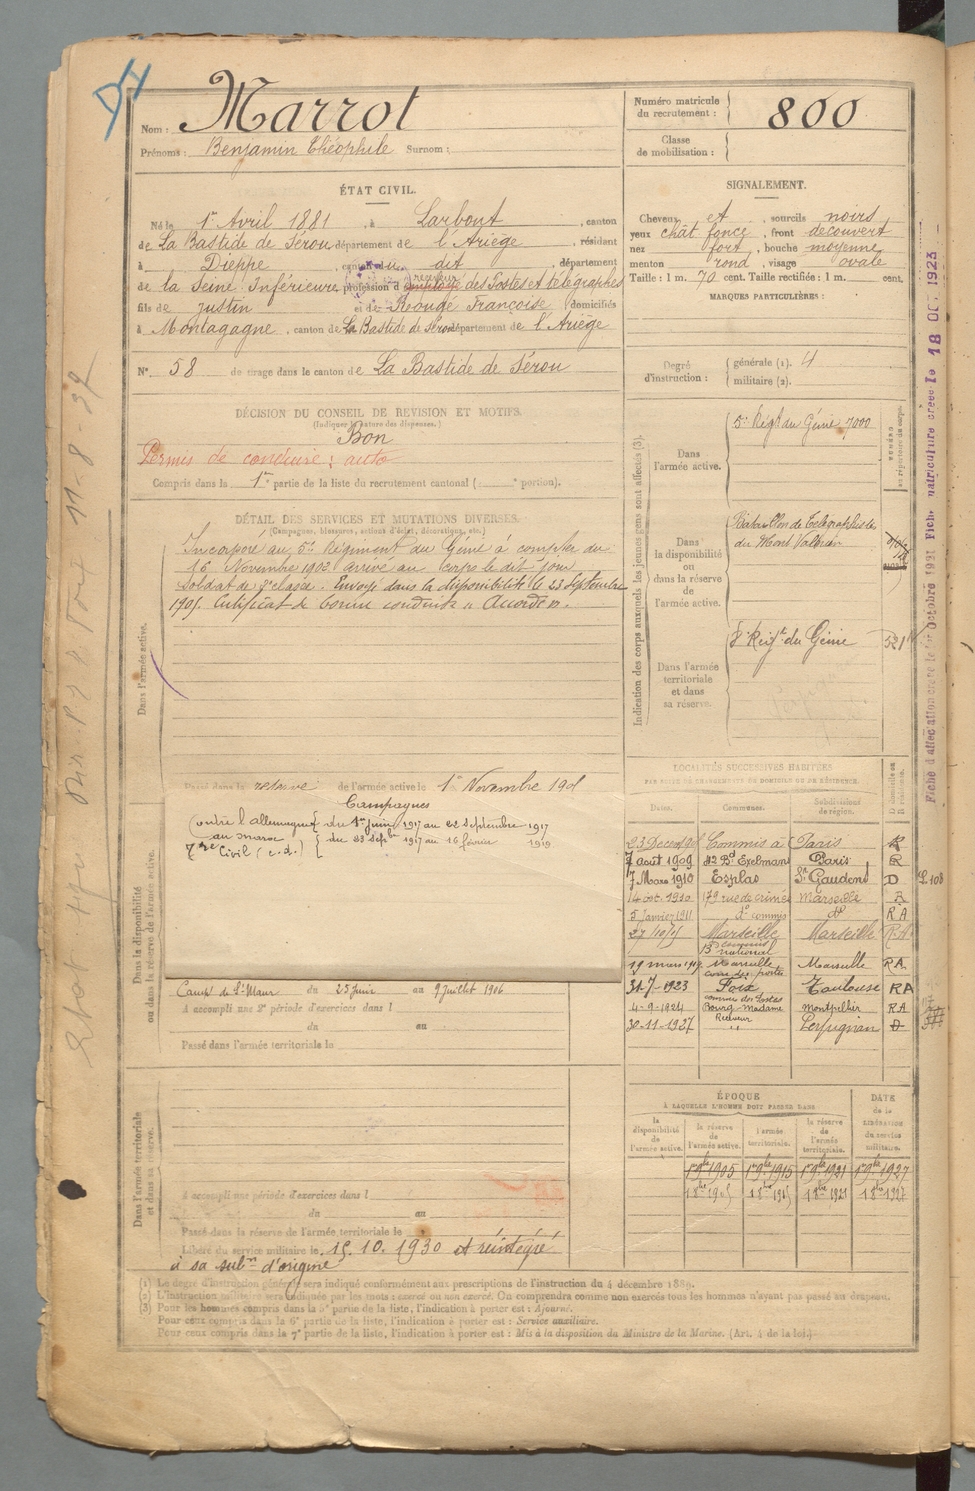 Nom : Marrot
Prénoms : Benjamin Théophile Surnom :
Numéro matricule du recrutement : 800
Classe de mobilisation :
ÉTAT CIVIL.
Né le 1er Avril 1881, à Larbont, canton
de La Bastide de Sérou département de l'Ariège, résidant
à Dieppe, canton du dit, département
de la Seine Inférieure, profession d receveur des Postes et télégraphes
fils de Justin et de Rougé Françoise domiciliés
à Montagagne, canton de La Bastide de Sérou département de l'Ariège
N° 58 de tirage dans le canton de La Bastide de Sérou
SIGNALEMENT.
Cheveux et, sourcils noirs
yeux chât foncé, front découvert
nez fort, bouche moyenne
menton rond, visage ovale
Taille : 1 m. 70 cent. Taille rectifiée : 1 m. cent.
MARQUES PARTICULIÈRES :
Degré d'instruction : générale (1). 4
militaire (2).
DÉCISION DU CONSEIL DE REVISION ET MOTIFS.
(Indiquer la nature des dispenses.)
Bon
Permis de conduire : auto
Compris dans la 1re partie de la liste du recrutement cantonal ( e portion).
DÉTAIL DES SERVICES ET MUTATIONS DIVERSES.
(Campagnes, blessures, actions d'éclat, décorations, etc.)
Incorporé au 5e Régiment du Génie à compter du
16 Novembre 1902 arrivé au corps le dit jour
soldat de 2e classe. Envoyé dans la disponibilité le 23 Septembre
1905. Certificat de bonne conduite "Accordé".
Dans l'armée active.
Passé dans la réserve de l'armée active le 1er Novembre 1905
Campagnes
Contre l'allemagne du 1er juin 1917 au 22 septembre 1917
au maroc du 23 septbre 1917 au 16 février 1919
Civil (c.d.)
Dans la disponibilité ou dans la réserve de l'armée active.
Camp de St Maur du 25 Juin au 9 Juillet 1906
A accompli une 2e période d'exercices dans l
du au
Passé dans l'armée territoriale le
Dans l'armée territoriale et dans sa réserve.
A accompli une période d'exercices dans l
du au
Passé dans la réserve de l'armée territoriale le
Libéré du service militaire le 15.10.1930 et réintégré
à sa subon d'origine
Indication des corps auxquels les jeunes gens sont affectés (3).
Dans l'armée active.
5e Régt du Génie 7000
Dans la disponibilité ou dans la réserve de l'armée active.
Bataillon de Télégraphistes
du Mont Valérien
Dans l'armée territoriale et dans sa réserve.
8e Régt du Génie
LOCALITÉS SUCCESSIVES HABITÉES
PAR SUITE DE CHANGEMENT DE DOMICILE OU DE RÉSIDENCE.
Dates. Communes. Subdivisions de région. D domicile ou R résidence.
Commis à Paris R
7 août 1909 82 Bd Exelmans Paris R
7 Mars 1910 Esplas St Gaudens D
14 oct. 1910 179 rue de crimée Marseille R
5 Janvier 1911 de commis do RA
Marseille Marseille RA
19 mars 1919 Marseille Marseille RA
31-7-1923 Foix Toulouse RA
4-9-1924 Bourg-Madame Montpellier RA
30-11-1927 Receveur " Perpignan D
ÉPOQUE
À LAQUELLE L'HOMME DOIT PASSER DANS
la disponibilité de l'armée active. la réserve de l'armée active. l'armée territoriale. la réserve de l'armée territoriale. DATE de la LIBÉRATION du service militaire.
1 9bre 1905 1 9bre 1915 1 9bre 1921 1 9bre 1927
1 8bre 1905 1 8bre 1915 1 8bre 1921 1 8bre 1927
(1) Le degré d'instruction générale sera indiqué conformément aux prescriptions de l'instruction du 4 décembre 1889.
(2) L'instruction militaire sera indiquée par les mots : exercé ou non exercé. On comprendra comme non exercés tous les hommes n'ayant pas passé au drapeau.
(3) Pour les hommes compris dans la 5e partie de la liste, l'indication à porter est : Ajourné.
Pour ceux compris dans la 6e partie de la liste, l'indication à porter est : Service auxiliaire.
Pour ceux compris dans la 7e partie de la liste, l'indication à porter est : Mis à la disposition du Ministre de la Marine. (Art. 4 de la loi.)